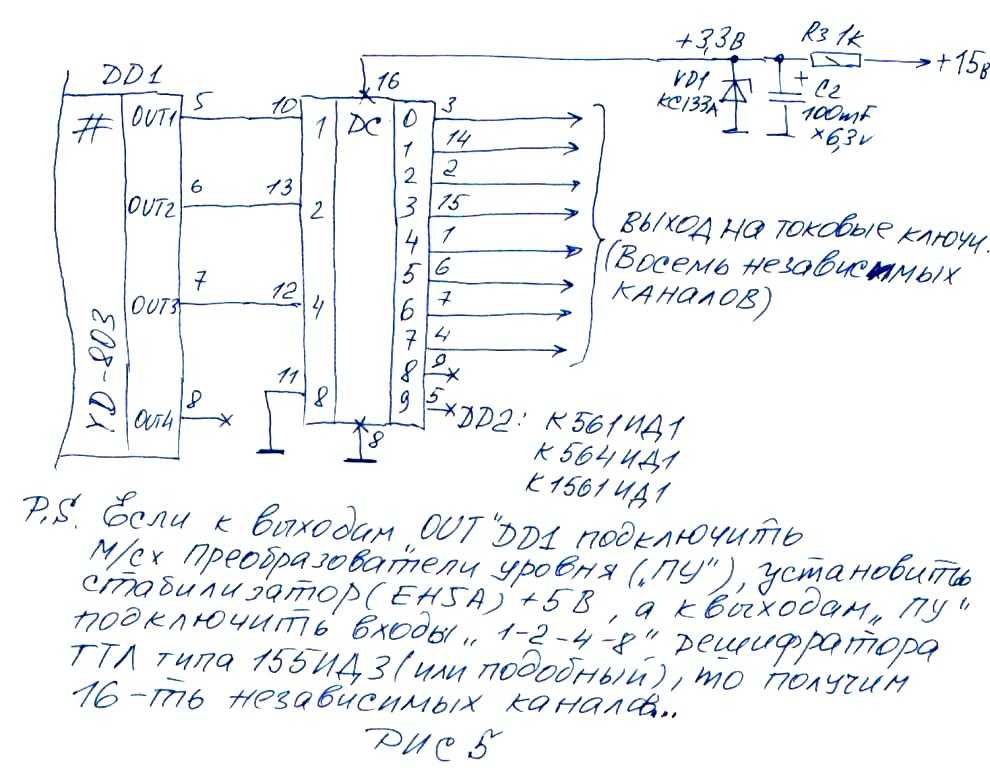 +3,3В
R3 1К
+15В
VD1
КС133А
+
C2
100mF
×6,3v
DD1
#
YD-803
OUT1
OUT2
OUT3
OUT4
5
6
7
8
10
13
12
11
16
1
2
4
8
DC
0
1
2
3
4
5
6
7
8
9
3
14
2
15
1
6
7
4
9
5
8
ВЫХОД НА ТОКОВЫЕ КЛЮЧИ.
(ВОСЕМЬ НЕЗАВИСИМЫХ
КАНАЛОВ)
DD2: К561ИД1
К564ИД1
К1561ИД1
P.S. Если к выходам „OUT" DD1 подключить
м/сх преобразователи уровня („ПУ"), установить
стабилизатор (ЕН5А) +5В, а к выходам „ПУ"
подключить входы „1-2-4-8" дешифратора
ТТЛ типа 155ИД3 (или подобный), то получим
16-ть независимых каналов...
РИС 5